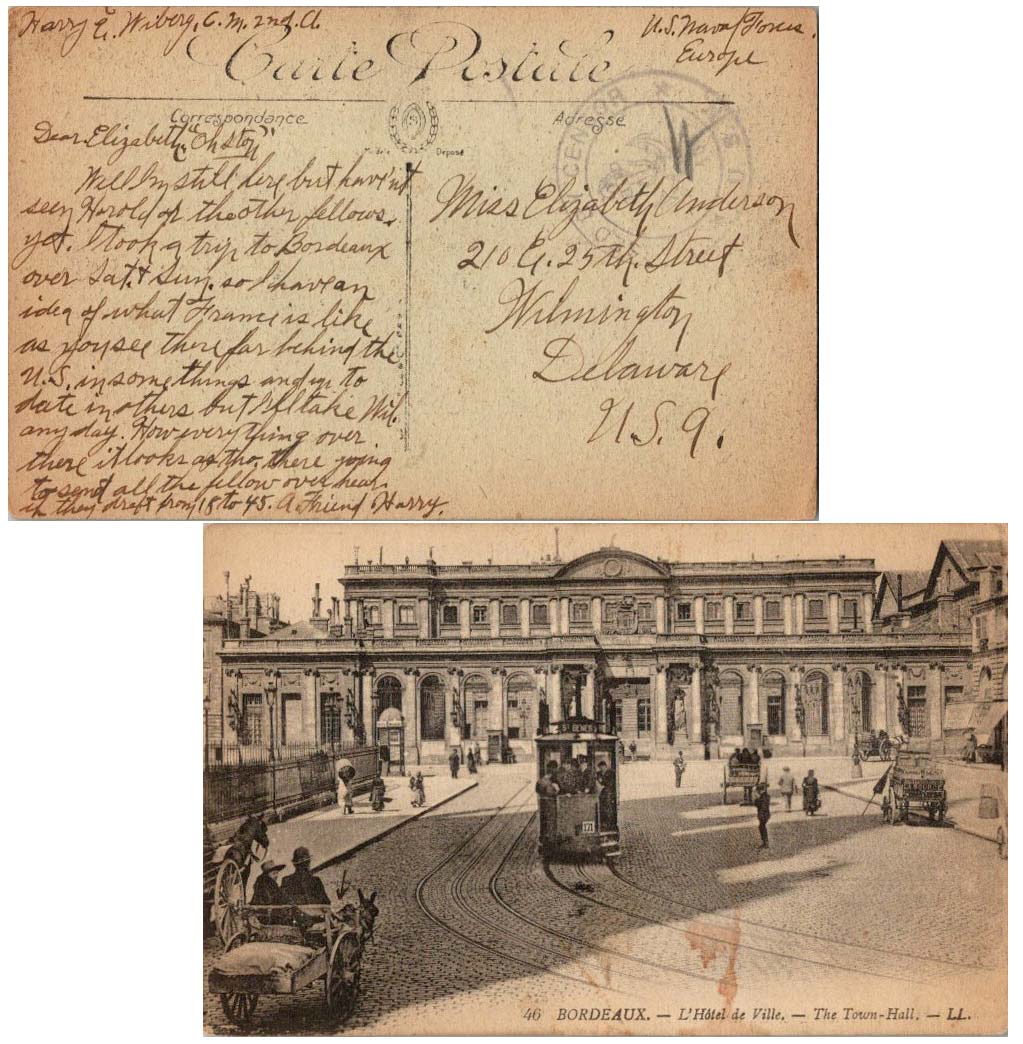 Harry E. Wiberg, C.M. 2nd. Cl.
U.S. Naval Forces.
Europe
Carte Postale
Correspondance
Adresse
Modèle Déposé
CENSOR
Dear Elizabeth "Ohstoy"
Well Im still here but have'nt
seen Harold or the other fellows
yet. I took a trip to Bordeaux
over Sat. & Sun. so I have an
idea of what France is like
as you see there far behind the
U.S. in some things and up to
date in others but I'll take Wil.
any day. How everything over
there it looks as tho. there going
to send all the fellow over hear
if they draft from 18 to 45. A Friend Harry.
W
Miss Elizabeth Anderson
210 E. 25th. Street
Wilmington
Delaware
U.S.A.
171
46 BORDEAUX. — L'Hôtel de Ville. — The Town-Hall. — LL.